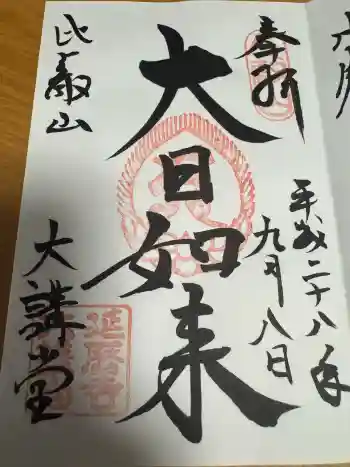 奉拝
平成二十八年
九月八日
大日如来
比叡山
大講堂
延暦寺